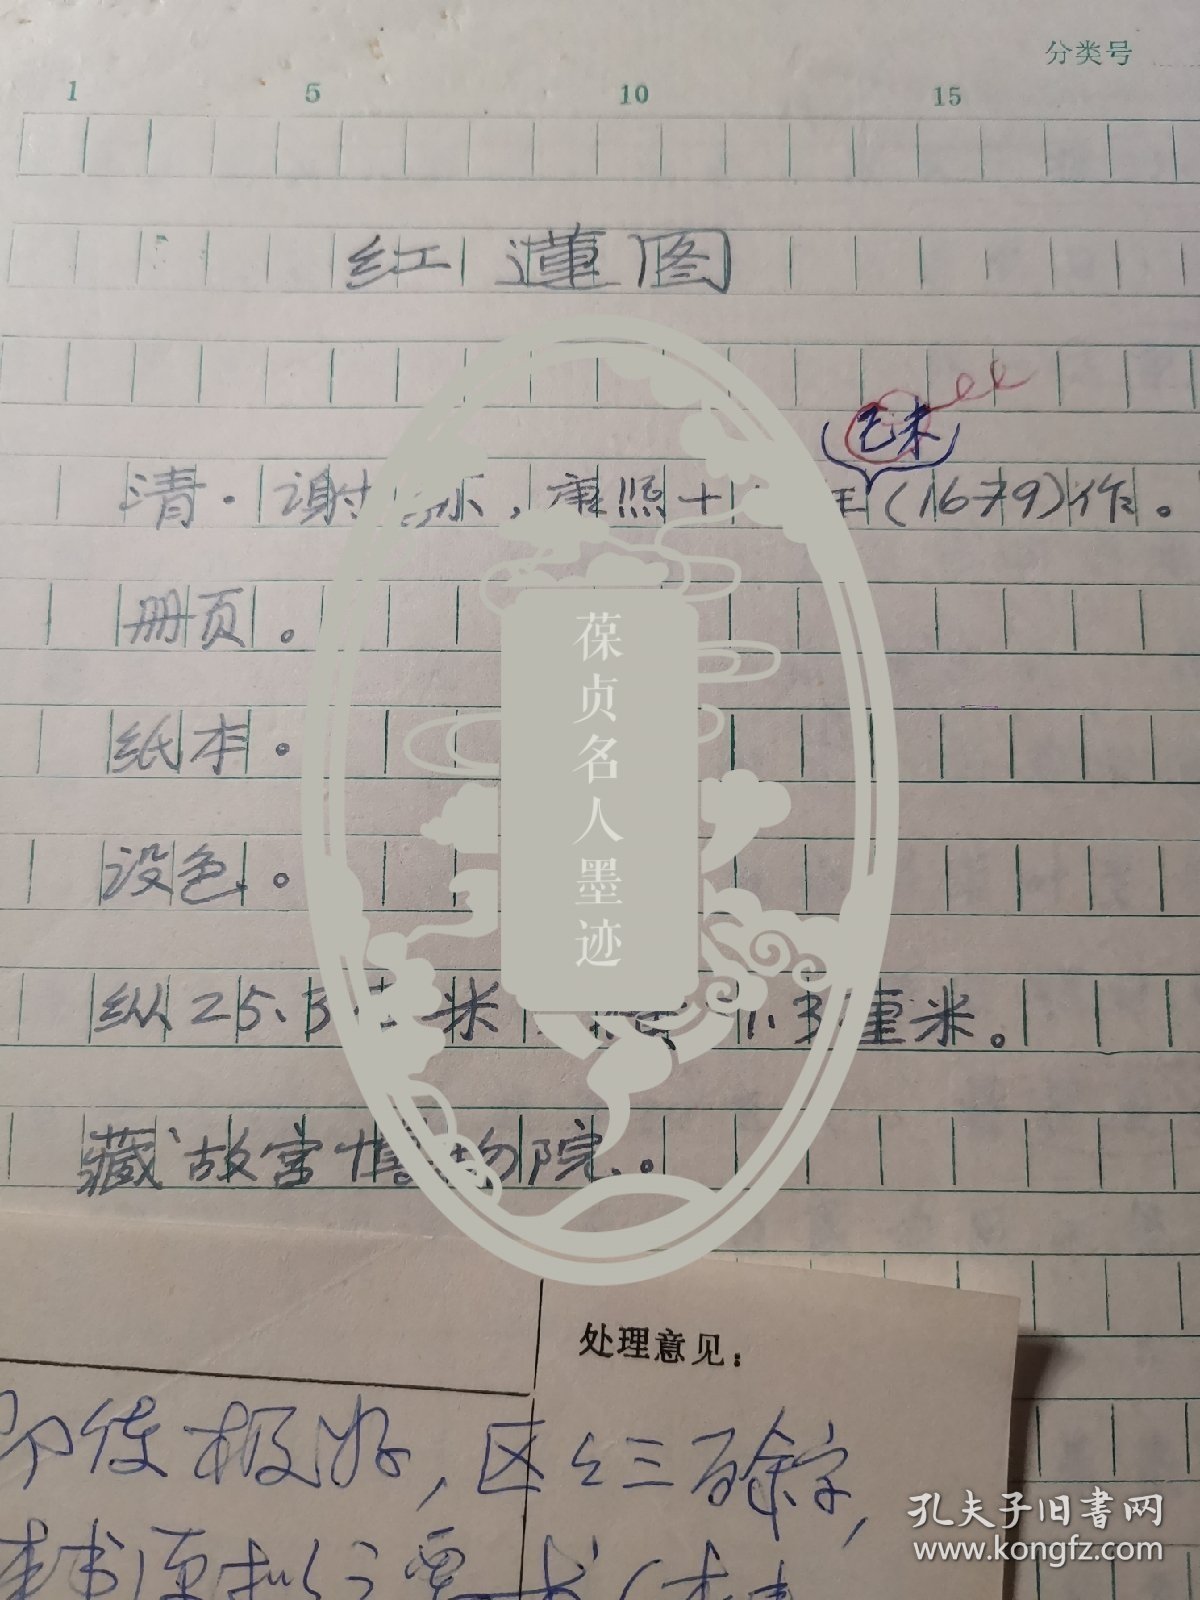 分类号
1 5 10 15
红莲图
己未
清·谢 康熙十 年(1679)作。
册页。
纸本。
设色。
纵25.5 米 1.3厘米。
藏故宫博物院。
葆贞名人墨迹
处理意见：
极好，区区三百余字，
孔夫子旧书网
www.kongfz.com